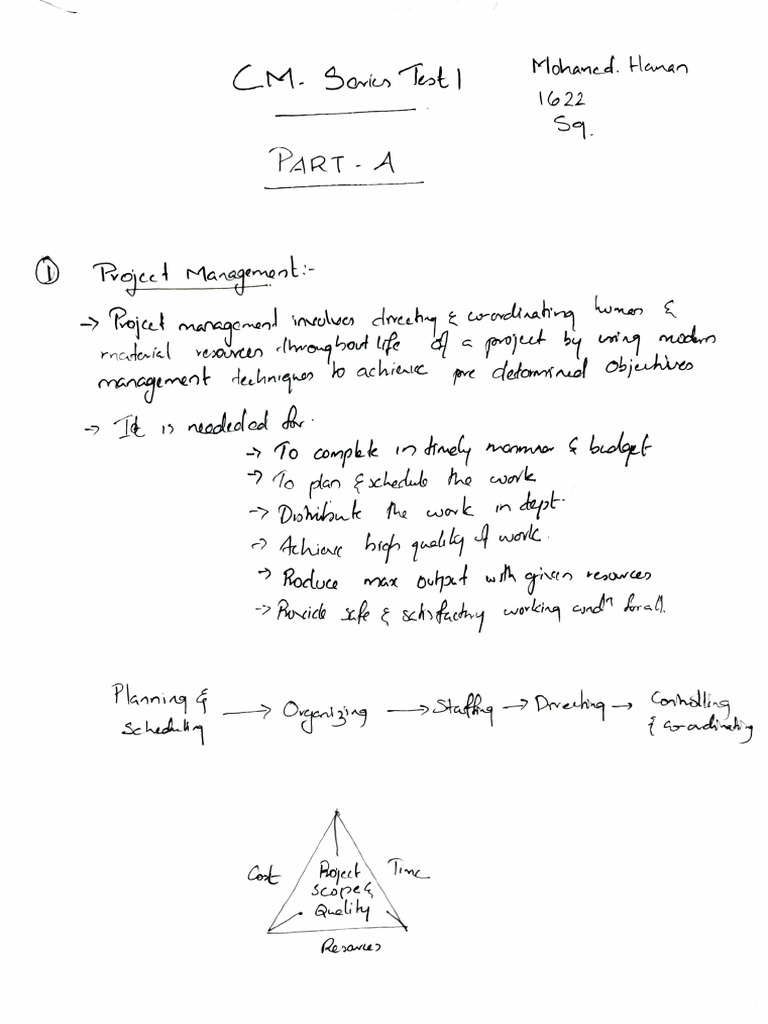 CM. Series Test 1
Mohamed. Hanan
1622
S9.
PART - A
① Project Management:-
→ Project management involves directing & co-ordinating human &
material resources throughout life of a project by using modern
management techniques to achieve pre determined objectives
→ It is needed for.
→ To complete in timely manner & budget
→ To plan & schedule the work
→ Distribute the work in dept.
→ Achieve high quality of work.
→ Produce max output with given resources
→ Provide safe & satisfactory working condⁿ for all.
Planning & → Organizing → Staffing → Directing → Controlling
Scheduling & co-ordinating
Cost Project Time
scope &
Quality
Resources